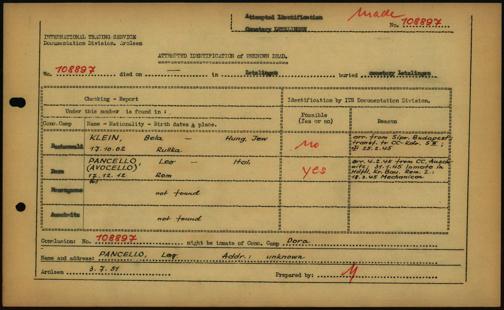 Attempted Identification
Cemetery LETELINGEN
made
No. 108897
INTERNATIONAL TRACING SERVICE
Documentation Division, Arolsen
ATTEMPTED IDENTIFICATION of UNKNOWN DEAD.
No. 108897 died on — in Letelingen buried cemetery Letelingen
Checking - Report
Under this number is found in:
Identification by ITS Documentation Division.
Conc.Camp
Name - Nationality - Birth dates & place.
Possible (Yes or no)
Reason
KLEIN, Bela — Hung. Jew
17.10.02 Rutka
no
arr. from Sipo. Budapest;
transf. to CC-Kdo. S III;
25.2.45
Dora
PANCELLO Leo — Ital.
(AVOCELLO)
17.12.12 Rom
yes
arr. 4.2.45 from CC. Ausch-
witz;
Mechanican
not found
Auschwitz
not found
Conclusion: No. 108897 might be inmate of Conc. Camp Dora
Name and address: PANCELLO, Leo Addr.: unknown
Arolsen 3.7.51
Prepared by: